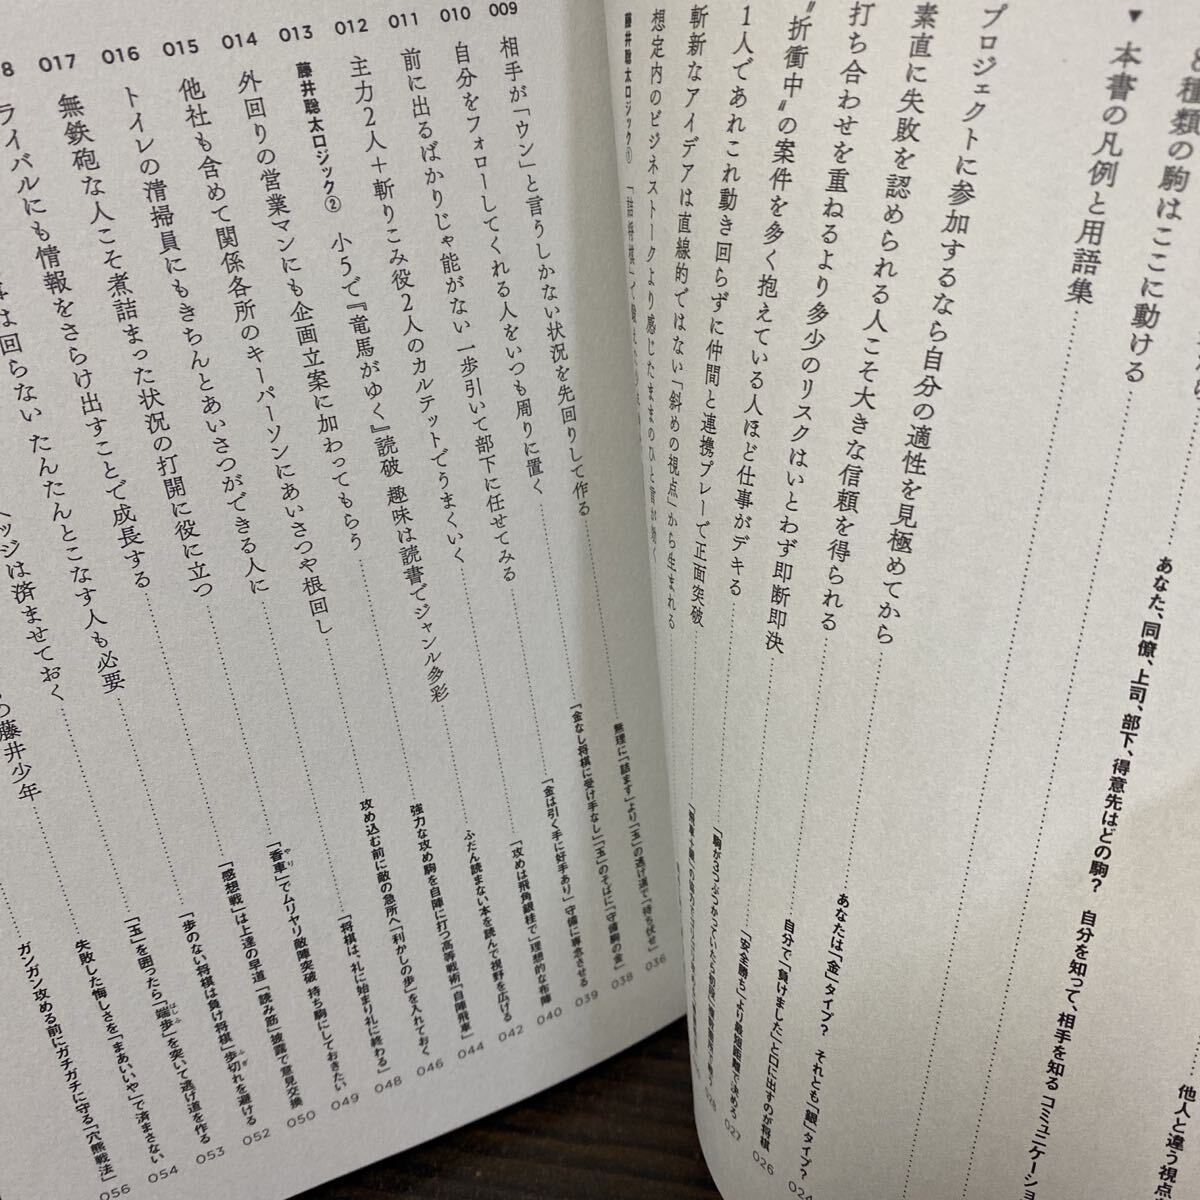 種類の駒はここに動ける
あなた、同僚、上司、部下、得意先はどの駒？ 自分を知って、相手を知る コミュニケーショ
▼ 本書の凡例と用語集
他人と違う視点
プロジェクトに参加するなら自分の適性を見極めてから
あなたは「金」タイプ？ それとも「銀」タイプ？ 024
素直に失敗を認められる人こそ大きな信頼を得られる
自分で「負けました」と口に出すのが将棋 026
打ち合わせを重ねるより多少のリスクはいとわず即断即決
「安全勝ち」より最短距離で決めろ 027
〝折衝中〟の案件を多く抱えている人ほど仕事がデキる
「駒が3つぶつかっていたら初段」
1人であれこれ動き回らずに仲間と連携プレーで正面突破
斬新なアイデアは直線的ではない「斜めの視点」から生まれる
想定内のビジネストークより感じたままのひと言が
藤井聡太ロジック① 「詰将棋」で
009 相手が「ウン」と言うしかない状況を先回りして作る
無理に「詰ます」より「玉」の逃げ道で「待ち伏せ」 036
010 自分をフォローしてくれる人をいつも周りに置く
「金なし将棋に受け手なし」「玉」のそばに「守備駒の金」 038
011 前に出るばかりじゃ能がない 一歩引いて部下に任せてみる
「金は引く手に好手あり」守備に専念させる 039
012 主力2人＋斬りこみ役2人のカルテットでうまくいく
「攻めは飛角銀桂で」理想的な布陣 040
藤井聡太ロジック② 小5で『竜馬がゆく』読破 趣味は読書でジャンル多彩
ふだん読まない本を読んで視野を広げる 042
013 外回りの営業マンにも企画立案に加わってもらう
強力な攻め駒を自陣に打つ高等戦術「自陣飛車」 044
014 他社も含めて関係各所のキーパーソンにあいさつや根回し
攻め込む前に敵の急所へ「利かしの歩」を入れておく 046
015 トイレの清掃員にもきちんとあいさつができる人に
「将棋は、礼に始まり礼に終わる」 048
016 無鉄砲な人こそ煮詰まった状況の打開に役に立つ
「香車」でムリヤリ敵陣突破 持ち駒にしておきたい 049
017 ライバルにも情報をさらけ出すことで成長する
「感想戦」は上達の早道 「読み筋」披露で意見交換 050
は回らない たんたんとこなす人も必要
「歩のない将棋は負け将棋」歩切れを避ける 052
ヘッジは済ませておく
「玉」を囲ったら「端歩」を突いて逃げ道を作る 053
藤井少年
失敗した悔しさを「まあいいや」で済まさない 054
ガンガン攻める前にガチガチに守る「穴熊戦法」 056